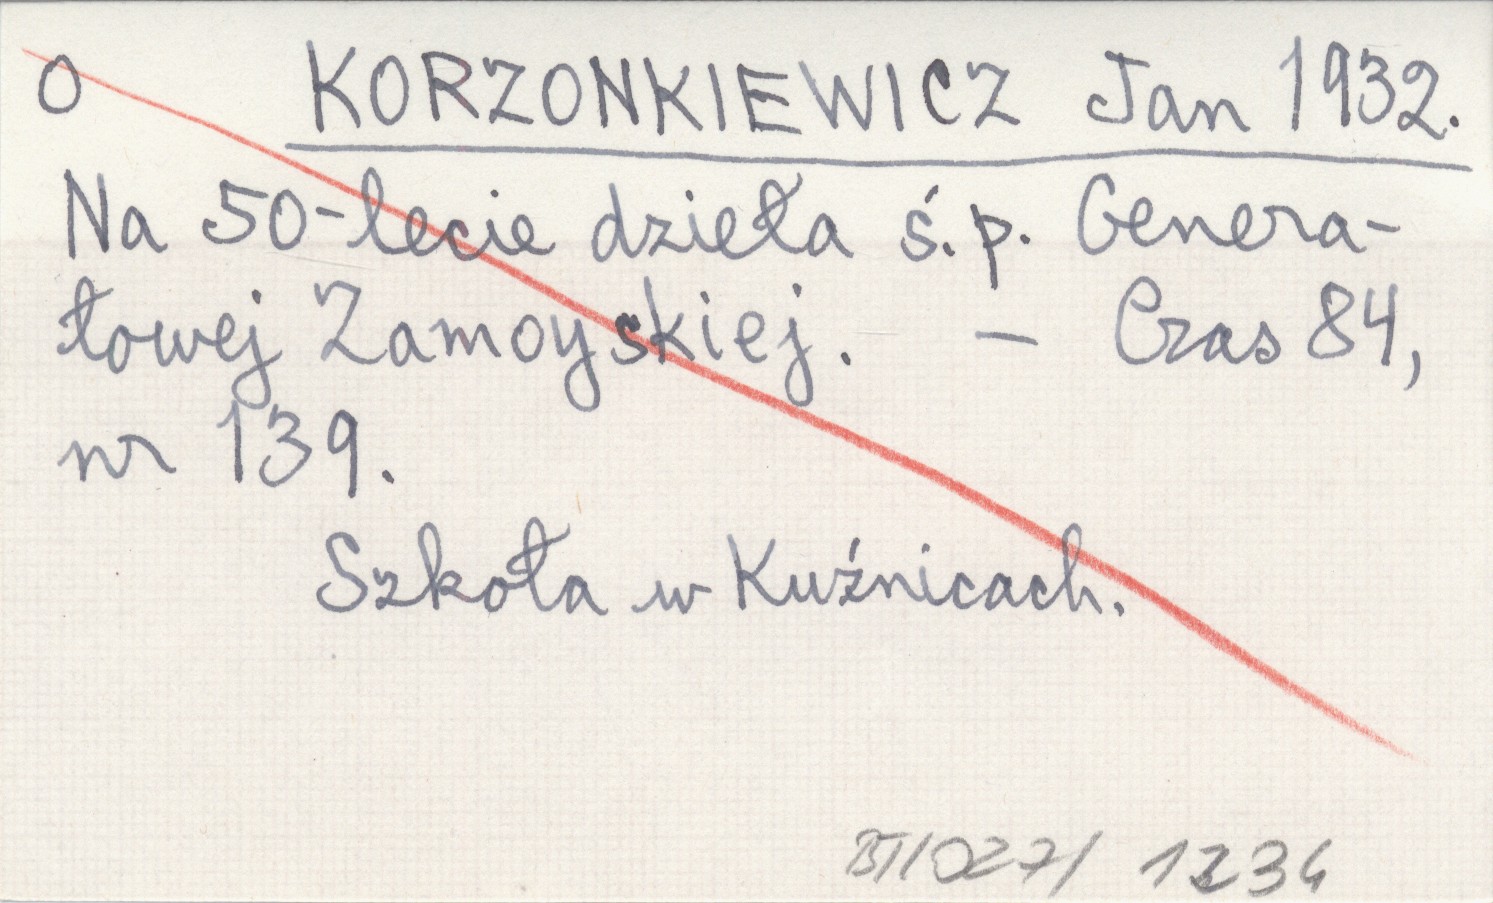 O KORZONKIEWICZ Jan 1932.
Na 50-lecie dzieła ś.p. Genera-
łowej Zamoyskiej. — Czas 84,
nr 139.
Szkoła w Kuźnicach.
BT/027/ 1234